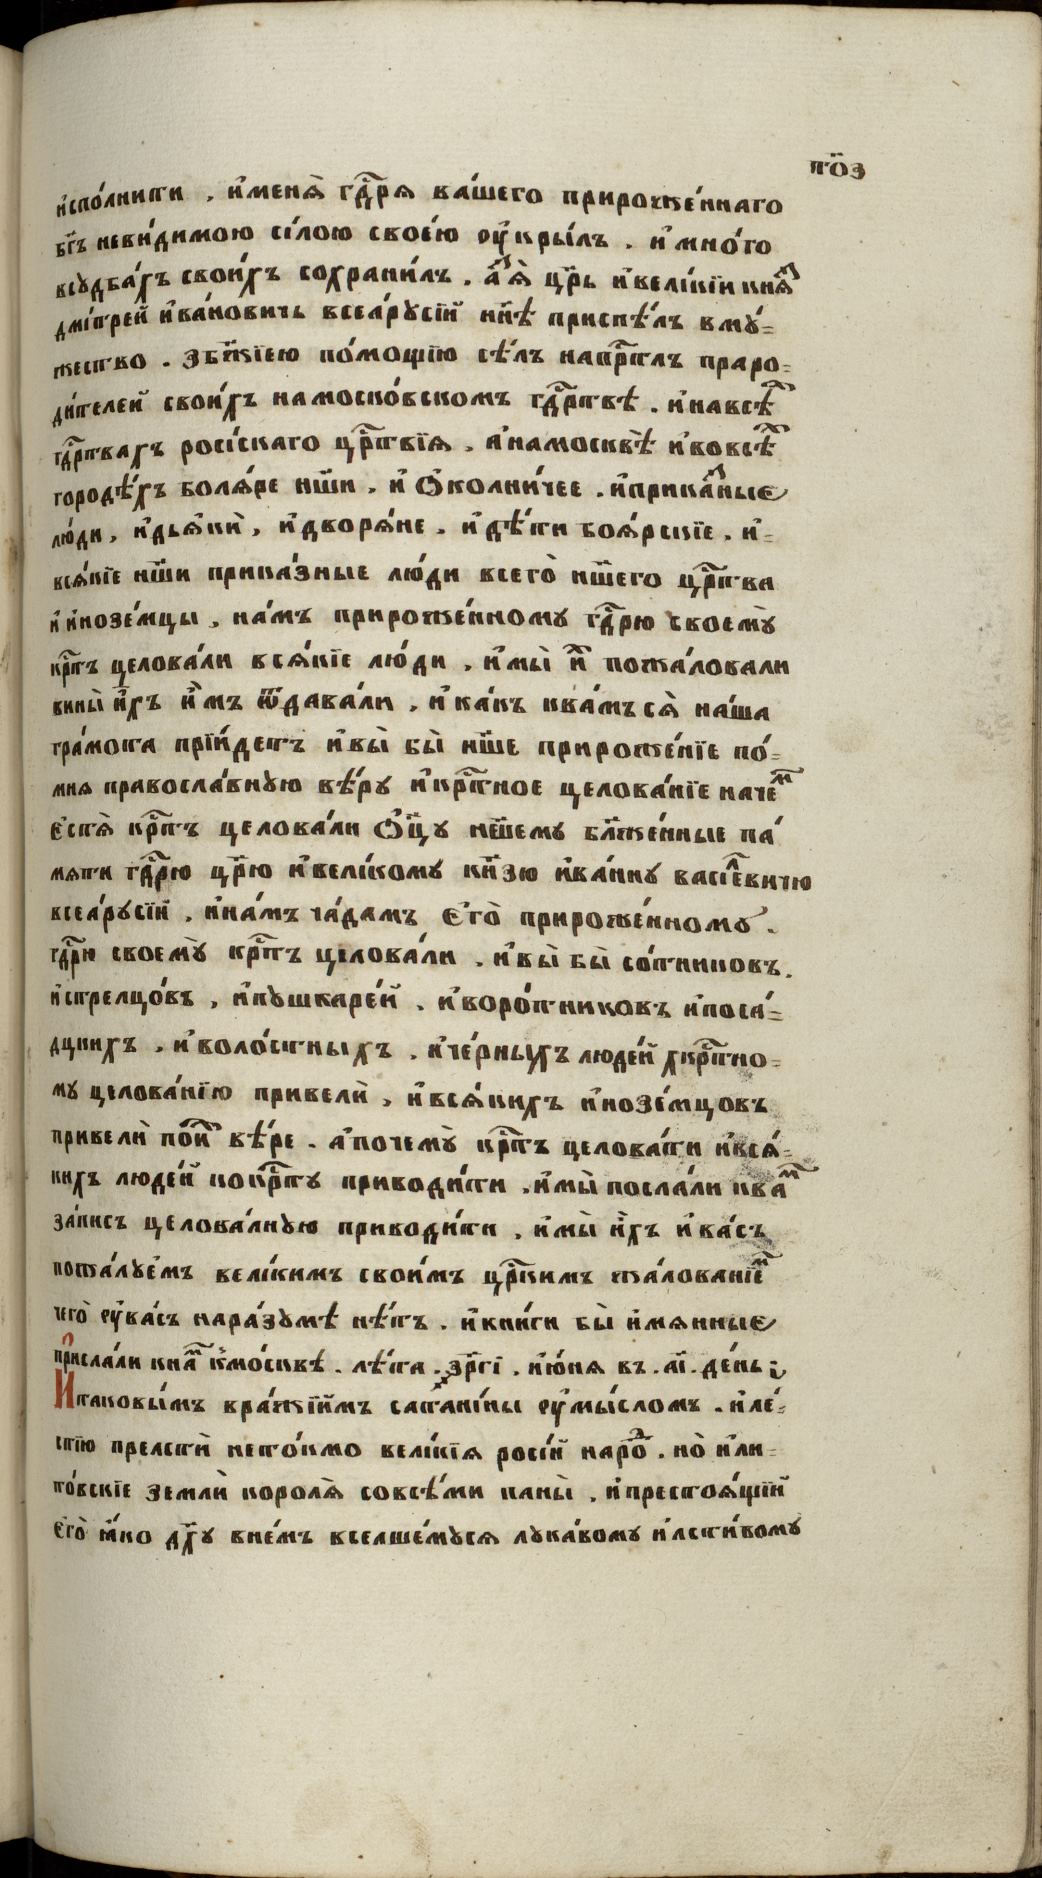 тѯз
и҆спо́лнити , и҆меня̀ гдⷭ҇ря ва́шего прироже́ннаго
бг҃ъ неви́димою си́лою свое́ю ѹ҆кры́лъ . и҆ мно́го
всꙋдба́хъ свои́хъ сохрани́лъ . а҆ꙗ҆̀ црь҃ и҆вели́кїи кн҃ѧⷥ
дми́трей и҆ва́новичь всеа́рꙋсїй нн҃ѣ приспѣ́лъ вмꙋ́-
жество . збж҃їею по́мощїю сѣ́лъ напрⷭ҇тлъ праро-
ди́телей свои́хъ намоско́вскомъ гдⷭ҇рствѣ . и҆навсѣⷯ
гдⷭ҇рствахъ росі́скаго црⷭ҇твїя . а҆намосквѣ̀ и҆вовсѣⷯ
городѣ́хъ боля́ре нш҃и . и҆ ѻ҆колни́чее . и҆прика́ⷥные
лю́ди , и҆дья́ки , и҆дворя́не . и҆дѣ́ти боя́рскїе . и҆-
вся́кїе нш҃и прика́зные лю́ди всего̀ нш҃его црⷭ҇тва
и҆ и҆нозе́мцы , на́мъ прироже́нномꙋ гдⷭ҇рю своемꙋ̀
крⷭ҇тъ целова́ли вся́кїе лю́ди , и҆мы̀ и҆ⷯ пожа́ловали
вины̀ и҆́хъ и҆̀мъ ѿдава́ли , и҆ ка́къ ква́мъ ся̀ на́ша
гра́мота прїи́детъ и҆вы̀ бы̀ нш҃е прироже́нїе по́-
мня правосла́внꙋю вѣ́рꙋ и҆крⷭ҇тное целова́нїе наче́ⷨ
є҆стѧ̀ крⷭ҇тъ целова́ли ѻ҆ц҃ꙋ не҃шемꙋ блж҃е́нные па́
мяти гдⷭ҇рю црю҃ и҆вели́комꙋ кн҃зю и҆ва́ннꙋ васи́лⷧ҇евичю
всеа́рꙋсїй . и҆на́мъ ча́дамъ є҆го̀ прироже́нномꙋ .
гдⷭ҇рю своемꙋ̀ крⷭ҇тъ целова́ли . и҆вы̀ бы̀ со́тниковъ .
и҆стрелцо́въ , и҆пꙋшкаре́й . и҆воро́тниковъ и҆поса́-
дцкихъ . и҆воло́стныхъ . и҆че́рныхъ люде́й хкрⷭ҇тно-
мꙋ целова́нїю привелѝ , и҆вся́кихъ и҆нозе́мцовъ
привелѝ по́и҆ⷯ вѣ́ре . а҆почемꙋ̀ крⷭ҇тъ целова́ти и҆вся́-
кихъ люде́й кокрⷭ҇тꙋ приводи́ти . и҆мы̀ посла́ли ква́ⷨ
за́пись целова́лнꙋю приводи́ти , и҆мы̀ и҆̀хъ и҆ ва́съ
пожа́лꙋемъ вели́кимъ свои́мъ црⷭ҇кимъ жа́лованїеⷨ
чего̀ ѹ҆ва́съ нара́зꙋмѣ нѣ́тъ . и҆кни́ги бы̀ и҆мянные
присла́ли кна́ⷨ кмо́сквѣ . лѣ́та . зр҃гі . и҆ю́ня въ . а҃і . де́нь ;
И таковы́мъ вра́жїимъ сатани́ны ѹ҆мы́сломъ . и҆ле́-
стїю прелстѝ нето́кмо вели́кїя росі́й наро́ⷣ . но̀ и҆ли-
то́вскїе землѝ короля̀ совсѣ́ми паны̀ , и҆престоя́щїй
є҆го̀ ꙗ҆́ко дх҃ꙋ вне́мъ вселше́мꙋся лꙋка́вомꙋ и҆лсти́вомꙋ